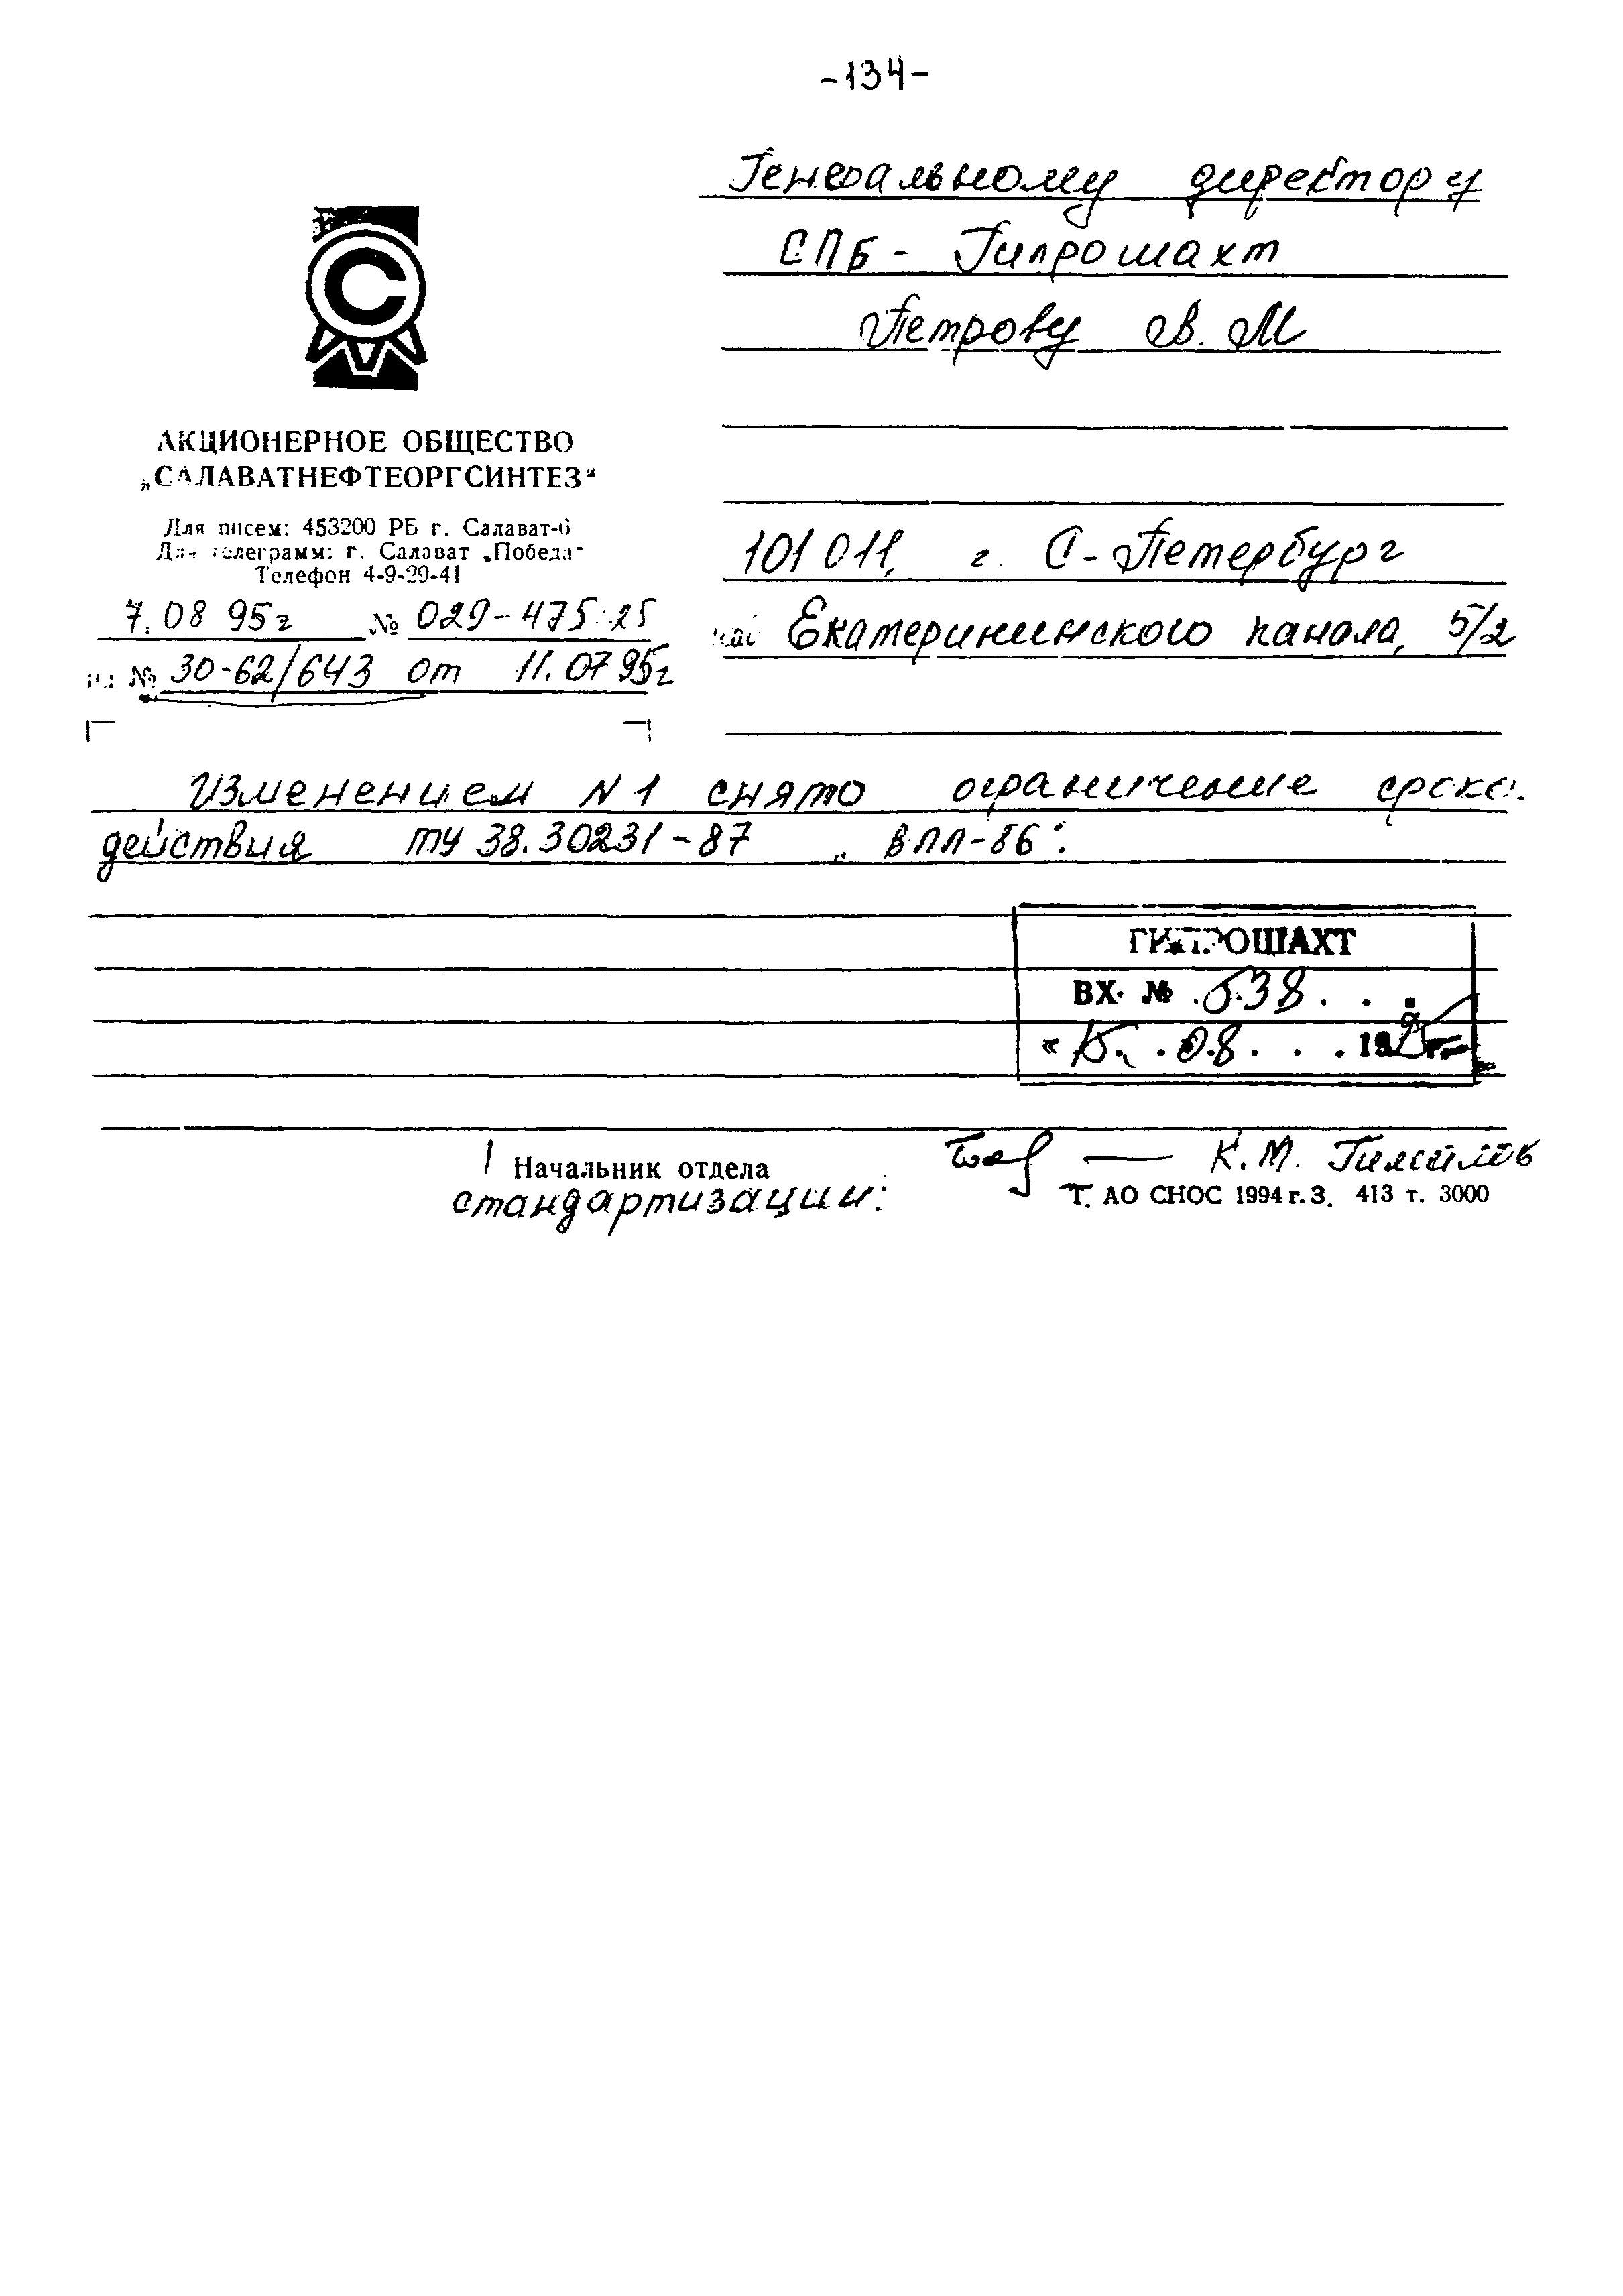 -134-
Генеральному директору
СПБ - Гипрошахт
Петрову В. М
АКЦИОНЕРНОЕ ОБЩЕСТВО
„САЛАВАТНЕФТЕОРГСИНТЕЗ“
Для писем: 453200 РБ г. Салават-6
Для телеграмм: г. Салават „Победа“
Телефон 4-9-29-41
7.08 95г № 029-475
на № 30-62/643 от 11.07 95г
101 011, г. С-Петербург
наб Екатерининского канала, 5/2
Изменением N 1 снято ограничение срока
действия ту 38.30231-87 „ВПП-86“.
ГИПРОШАХТ
ВХ. № 538
« 15 . 08 . . . 1995 г.
Начальник отдела
стандартизации:
К. М.
Т. АО СНОС 1994 г. З. 413 т. 3000